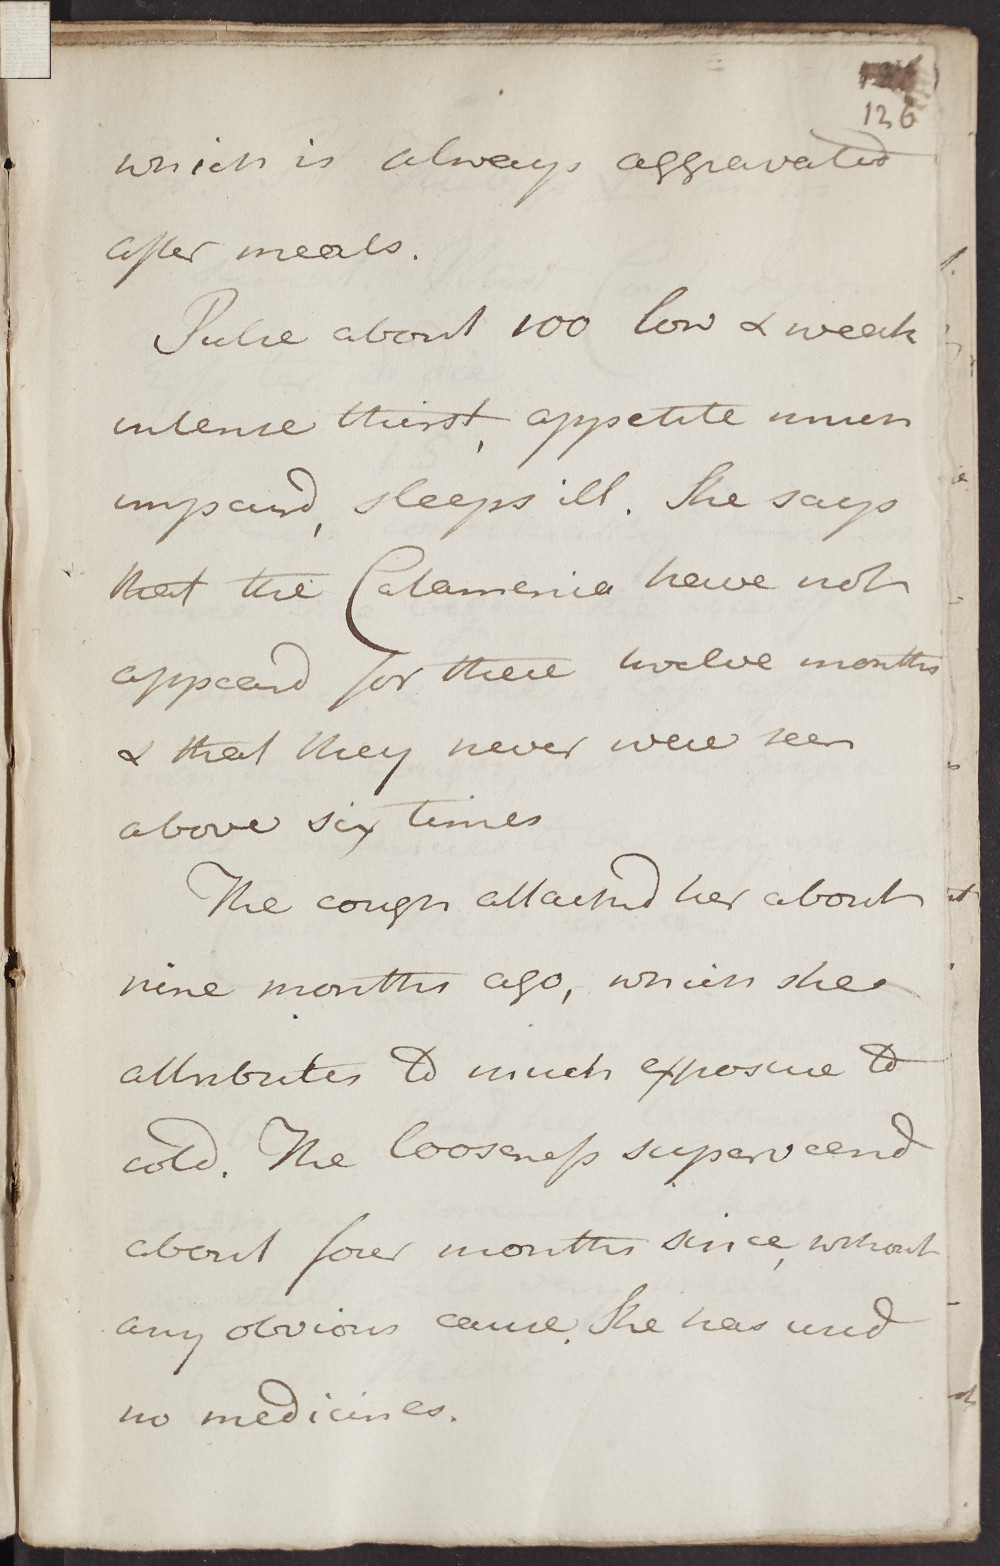 126
which is always aggravated
after meals.
Pulse about 100 low & weak
intense thirst, appetite much
impaird, sleeps ill. She says
that the Catamenia have not
appeard for these twelve months
& that they never were seen
above six times
The cough attackd her about
nine months ago, which she
attributes to much exposure to
cold. The looseness superveend
about four months since, without
any obvious cause. She has usd
no medicines.